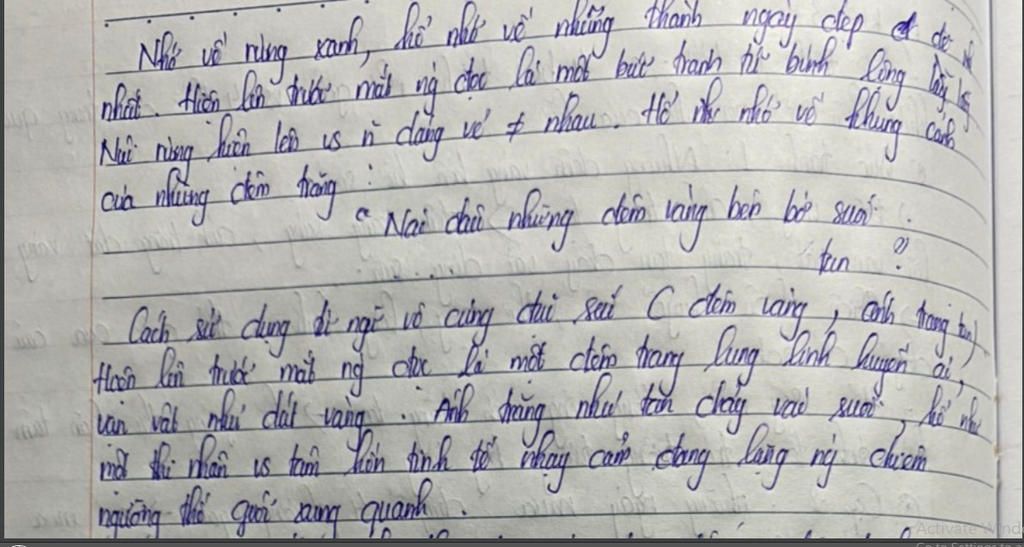 Nhớ về rừng xanh, hổ nhớ về những thanh ngày đẹp đẽ
nhất. Hiện lên trước mắt ng đọc là một bức tranh tứ bình lộng lẫy
Núi rừng hiện lên vs n dáng vẻ ≠ nhau. Hổ như nhớ về khung cảnh
của những đêm trăng :
"Nào đâu những đêm vàng bên bờ suối
tan ?"
Cách sử dụng từ ngữ vô cùng đặc sắc ( đêm vàng, ánh trăng tan)
Hiện lên trước mắt ng đọc là một đêm trăng lung linh huyền ảo,
vạn vật như dát vàng. Ánh trăng như tan chảy vào suối, hổ như
một thi nhân vs tâm hồn tinh tế nhạy cảm đang lặng ng chiêm
ngưỡng thế giới xung quanh.
Activate Wind